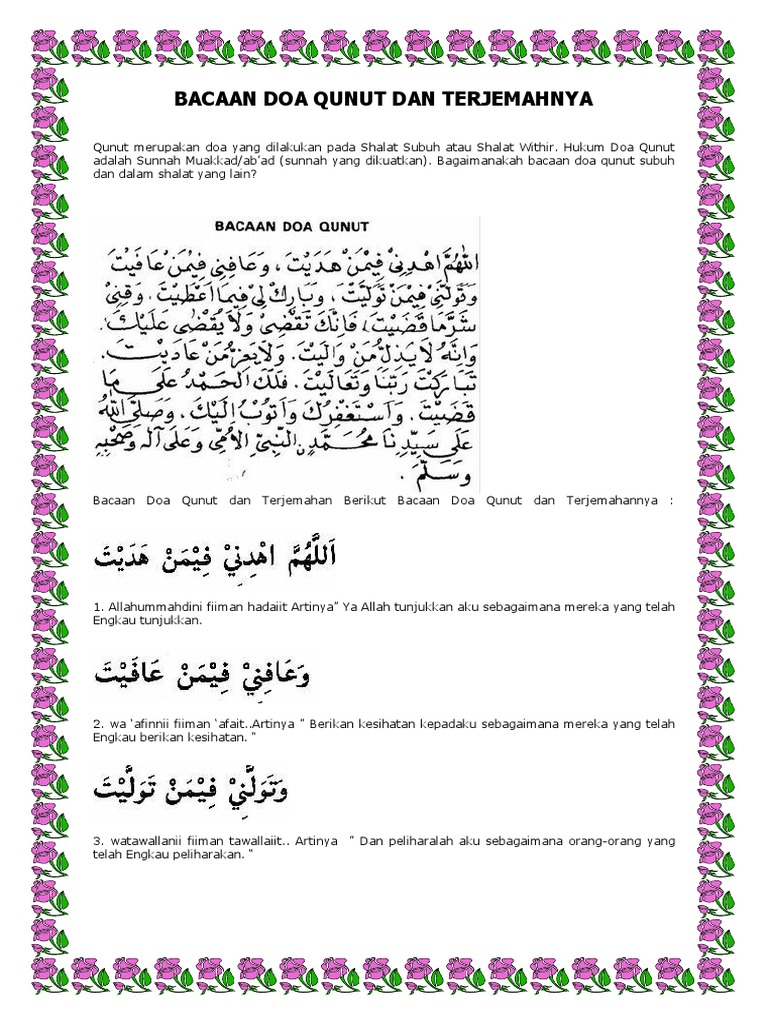 BACAAN DOA QUNUT DAN TERJEMAHNYA
Qunut merupakan doa yang dilakukan pada Shalat Subuh atau Shalat Withir. Hukum Doa Qunut
adalah Sunnah Muakkad/ab'ad (sunnah yang dikuatkan). Bagaimanakah bacaan doa qunut subuh
dan dalam shalat yang lain?
BACAAN DOA QUNUT
اللهُمَّ اهْدِنِيْ فِيْمَنْ هَدَيْتَ، وَعَافِنِي فِيْمَنْ عَافَيْتَ
وَتَوَلَّنِيْ فِيْمَنْ تَوَلَّيْتَ، وَبَارِكْ لِيْ فِيْمَا أَعْطَيْتَ. وَقِنِيْ
شَرَّمَا قَضَيْتَ، فَاِنَّكَ تَقْضِيْ وَلَا يُقْضَى عَلَيْكَ.
وَاِنَّهُ لَا يَذِلُّ مَنْ وَالَيْتَ. وَلَا يَعِزُّ مَنْ عَادَيْتَ.
تَبَارَكْتَ رَبَّنَا وَتَعَالَيْتَ. فَلَكَ الْحَمْدُ عَلَى مَا
قَضَيْتَ. وَاَسْتَغْفِرُكَ وَاَتُوْبُ اِلَيْكَ. وَصَلَّى اللهُ
عَلَى سَيِّدِنَا مُحَمَّدٍ النَّبِيِّ الْاُمِّيِّ وَعَلَى آلِهِ وَصَحْبِهِ
وَسَلَّمَ.
Bacaan Doa Qunut dan Terjemahan Berikut Bacaan Doa Qunut dan Terjemahannya :
اَللَّهُمَّ اهْدِنِيْ فِيْمَنْ هَدَيْتَ
1. Allahummahdini fiiman hadaiit Artinya" Ya Allah tunjukkan aku sebagaimana mereka yang telah
Engkau tunjukkan.
وَعَافِنِيْ فِيْمَنْ عَافَيْتَ
2. wa 'afinnii fiiman 'afait..Artinya " Berikan kesihatan kepadaku sebagaimana mereka yang telah
Engkau berikan kesihatan. "
وَتَوَلَّنِيْ فِيْمَنْ تَوَلَّيْتَ
3. watawallanii fiiman tawallaiit.. Artinya " Dan peliharalah aku sebagaimana orang-orang yang
telah Engkau peliharakan. "